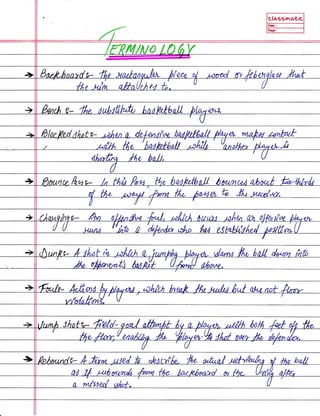 classmate
Date
Page
TERMINOLOGY
→ Backboard:- The rectangular piece of wood or feberglass that
the rim attatches to.
→ Bench:- The substitute basketball players
→ Blocked shot:- when a defensive basketball player makes contact
with the basketball while another player is
shooting the ball.
→ Bounce Pass:- In this Pass, the basketball bounces about two-thirds
of the way from the passer to the receiver.
→ Charging:- An offensive foul, which occurs when an offensive player
runs into a defender who has established position
→ Dunk:- A shot in which a jumping player slams the ball down into
the opponent's basket from above.
→ Foul:- Actions by players, which break the rules but are not floor
violations.
→ Jump shot:- Field-goal attempt by a player with both feet off the
the floor, enabling the player to shot over the defender.
→ Rebound:- A term used to describe the actual retrieving of the ball
as it rebounds from the backboard or the ring after
a missed shot.